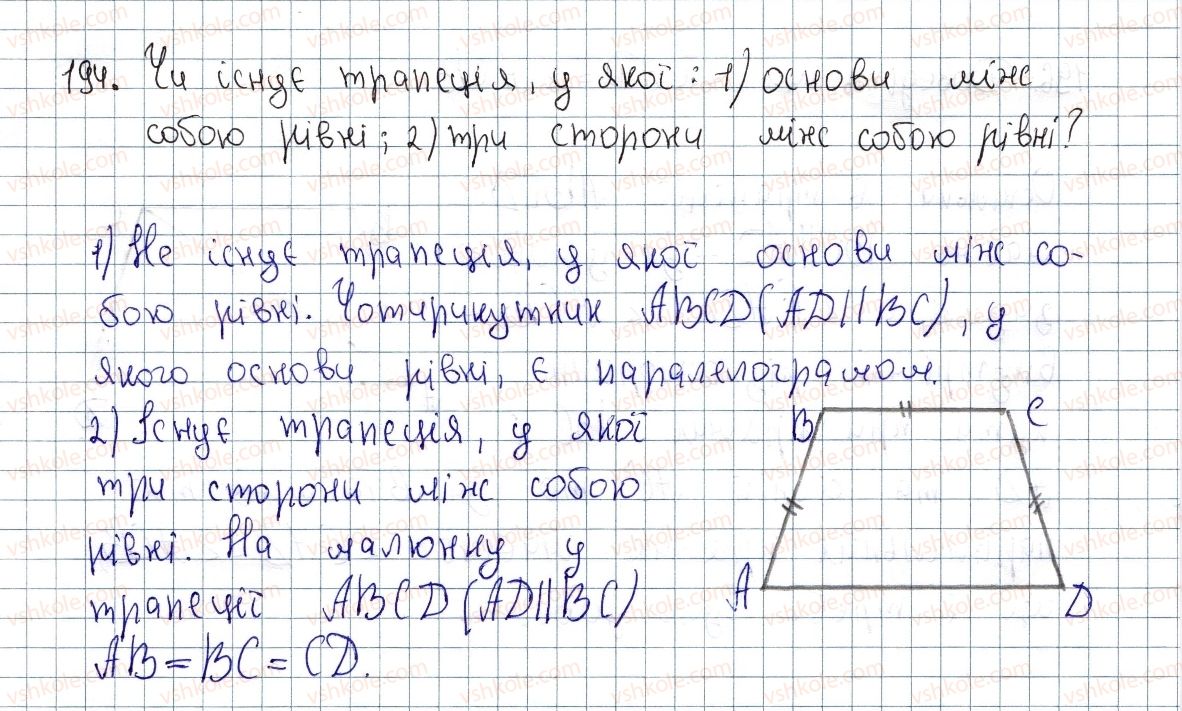 194. Чи існує трапеція, у якої: 1) основи між
собою рівні; 2) три сторони між собою рівні?
1) Не існує трапеція, у якої основи між со-
бою рівні. Чотирикутник ABCD (AD||BC), у
якого основи рівні, є паралелограмом.
2) Існує трапеція, у якої
три сторони між собою
рівні. На малюнку у
трапеції ABCD (AD||BC)
AB = BC = CD.
B C
A D
vshkole.com